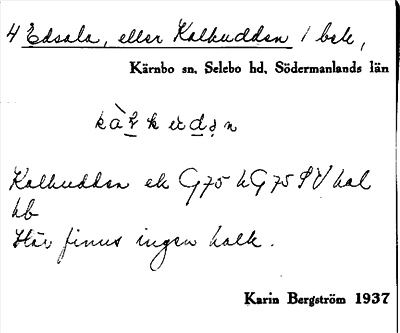 4 Edsala, eller Kalkudden 1 bek,
Kärnbo sn, Selebo hd, Södermanlands län
Kalkudden ek G75 hG75 SV
hb
Här finns ingen kalk.
Karin Bergström 1937